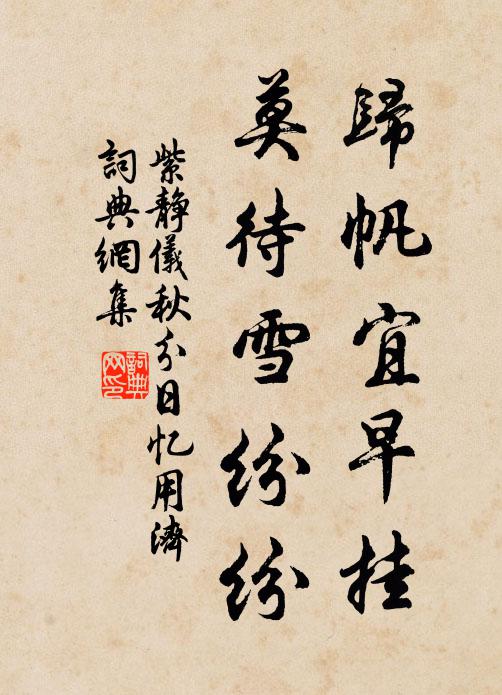 歸帆宜早挂
莫待雪紛紛
紫靜儀秋分日忆用濟
詞典網集
詞典网印